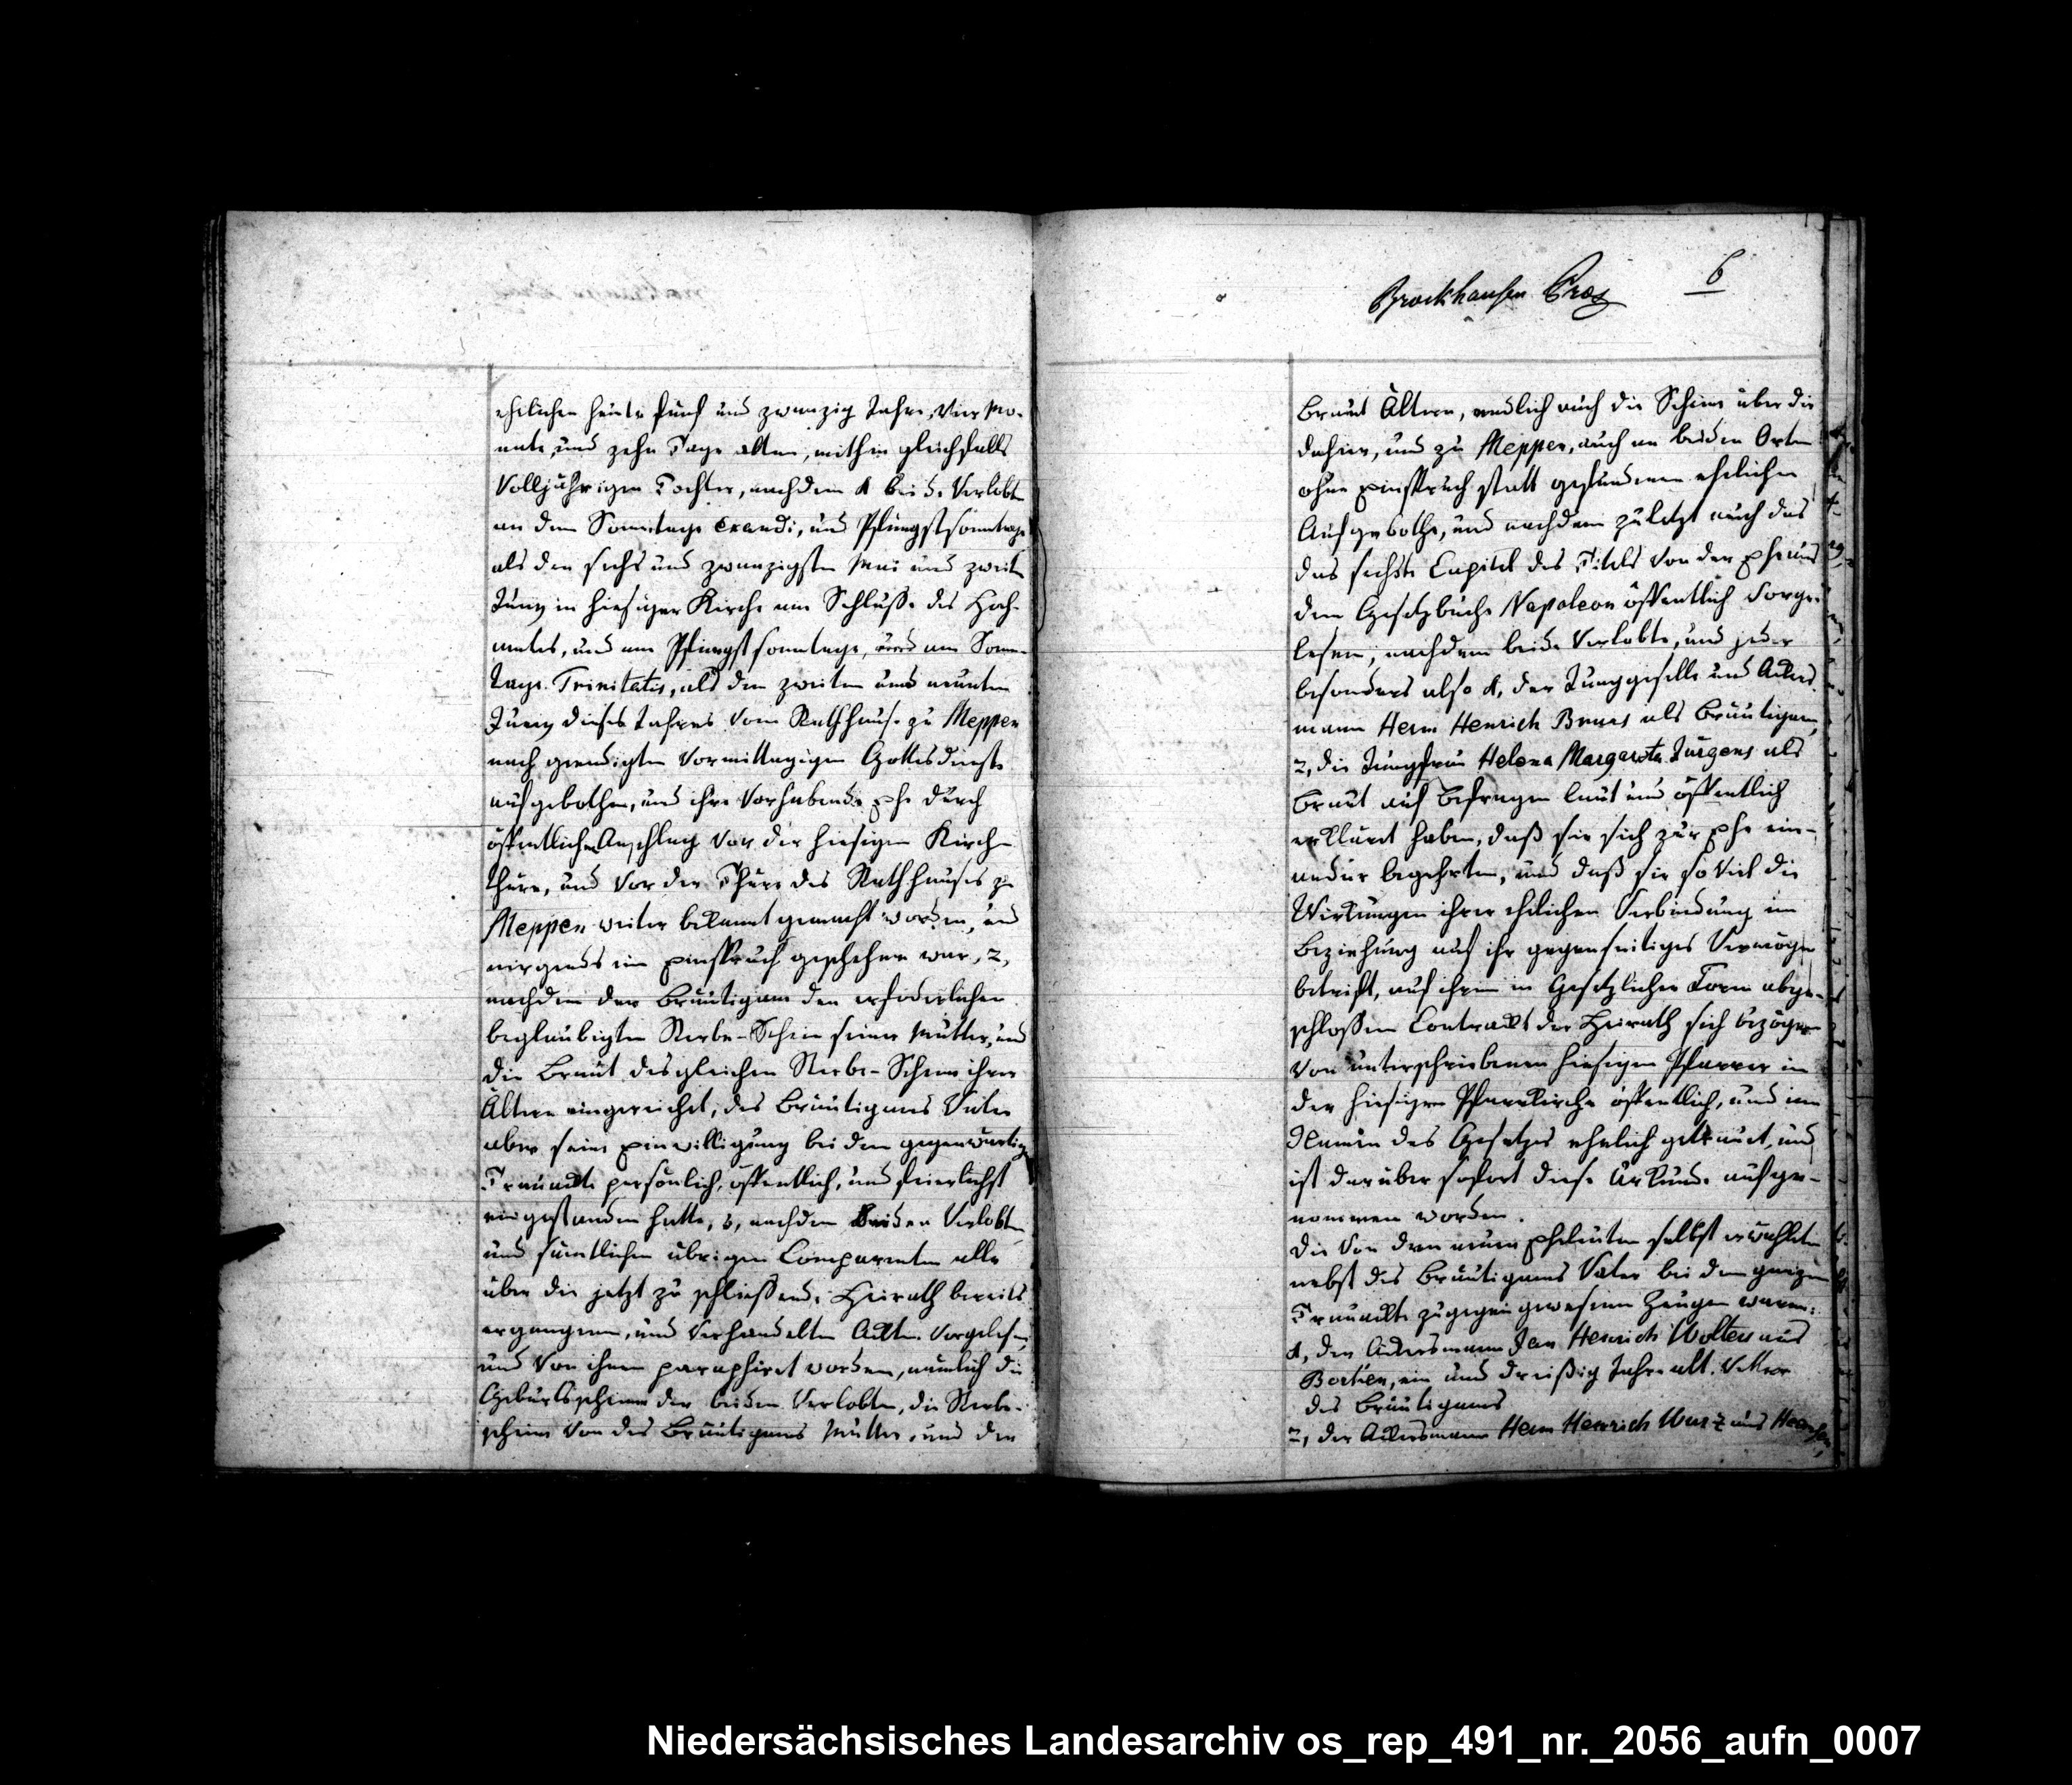 ehelichen heute fünf und zwanzig Jahre, vier Mo-
nate, und zehn Tage alten, mithin gleichfalls
Volljährigen Tochter, nachdem 1 beide Verlobte
an dem Sonntage Exaudi, und Pfingstsonntage
als den sechs und zwanzigsten Mai und zweiten
Juny in hiesiger Kirche am Schlusse des Hoch-
amtes, und am Pfingstsonntage, und am Sonn-
tage Trinitatis, als den zweiten und neunten
Juny dieses Jahres vom Rathhause zu Meppen
nach geendigten Vormittagigen Gottesdienste
aufgebothen, und ihre Vorhabende Ehe durch
öffentlichen Anschlag vor der hiesigen Kirch-
thüre, und vor der Thüre des Rathhauses zu
Meppen weiter bekannt gemacht worden, und
nirgends ein Einspruch geschehen war, 2,
nachdem der Bräutigam den erfoderlichen
beglaubigten Sterbe-Schein seiner Mutter, und
die Braut desgleichen Sterbe-Scheine ihrer
Ältern eingereichet, des Bräutigams Vater
aber seine Einwilligung bei dem gegenwärtigen
Trauackte persönlich, öffentlich, und feierlichst
eingestanden hatte, 3, nachdem beiden Verlobten
und sämtlichen übrigen Comparenten alle
über die jetzt zu schließende Heirath bereits
ergangene, und Verhandelten Ackten Vorgelesen,
und von ihnen paraphiret worden, nämlich die
Geburtsscheine der beiden Verlobten, die Sterbe-
scheine von des Bräutigams Mutter, und der
Brockhausen 6
Braut Ältern, endlich auch die Scheine über die
dahier, und zu Meppen, auch an beiden Orten
ohne Einspruch statt gefundenen ehelichen
Aufgebothe, und nachdem zuletzt auch das
das sechste Capitel des Titels von der Ehe aus
dem Gesetzbuche Napoleon öffentlich Vorge-
lesen, nachdem beide Verlobte, und jeder
besonders also 1, der Junggeselle und Ackers-
mann Herm Henrich Bruns als Bräutigam,
2, die Jungfrau Helena Margareta Jürgens als
Braut auf Befragen laut und öffentlich
erkläret haben, daß sie sich zur Ehe ein-
ander begehrten, und daß sie so viel die
Wirkungen ihrer ehelichen Verbindung in
Beziehung auf ihr gegenseitiges Vermögen
betrift, auf ihren in Gesetzlicher Form abge-
schlossenen Contrackt der Heirath sich bezögen
von unterschriebenen hiesigen Pfarrer in
der hiesigen Pfarrkirche öffentlich, und im
Namen des Gesetzes ehelich getrauet, und
ist darüber sofort diese Urkunde aufge-
nommen worden.
Die von den neuen Eheleuten selbst erwählten
nebst des Bräutigams Vater bei dem ganzen
Trauackte zugegen gewesenen Zeugen waren:
1, der Ackersmann Jan Henrich Wolters aus
Borken, ein und dreißig Jahre alt. Vetter
des Bräutigams
2, der Ackersmann Herm Henrich aus
Niedersächsisches Landesarchiv os_rep_491_nr._2056_aufn_0007